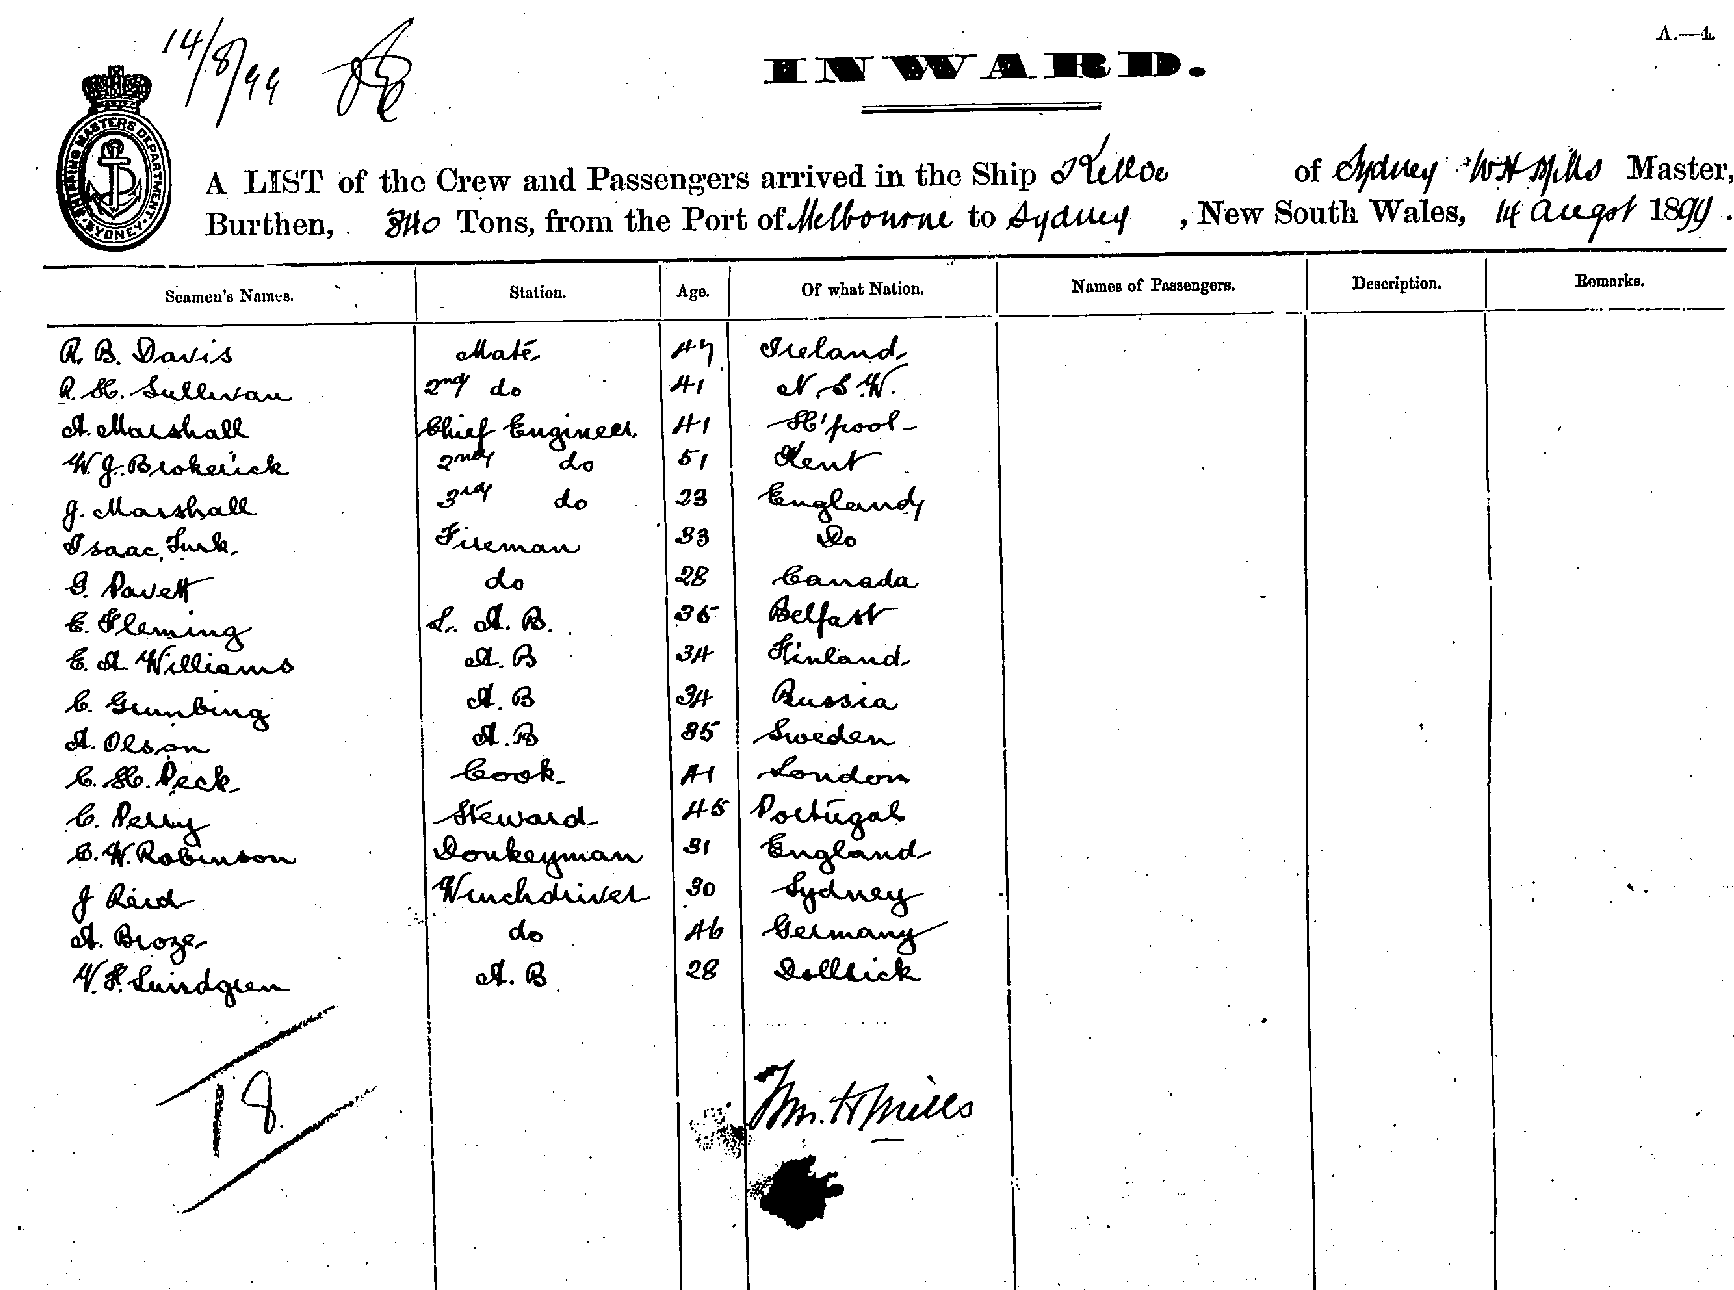 14/8/99
A.—4.
INWARD.
SHIPPING MASTERS DEPARTMENT. SYDNEY
A LIST of the Crew and Passengers arrived in the Ship Kelloe of Sydney W H Mills Master,
Burthen, 840 Tons, from the Port of Melbourne to Sydney, New South Wales, 14 Augst 1899.
Seamen's Names. Station. Age. Of what Nation. Names of Passengers. Description. Remarks.
R. B. Davis Mate 47 Ireland
R. H. Sullivan 2nd do 41 N.S.W.
A. Marshall Chief Engineer 41 H'pool
W. J. Brokerick 2nd do 51 Kent
J. Marshall 3rd do 23 England
Isaac Turk 33 Fireman Do
G. Pavett do 28 Canada
C. Fleming L. A. B. 35 Belfast
C. A Williams A. B 34 Finland
C. Grunbing A. B 34 Russia
A. Olson A. B 35 Sweden
C. H. Peck Cook 41 London
C. Perry Steward 45 Portugal
C. W. Robinson Donkeyman 31 England
J Reid Winchdriver 30 Sydney
A. Broze do 46 Germany
W. F. Lundgren A. B 28
18
Wm. H Mills